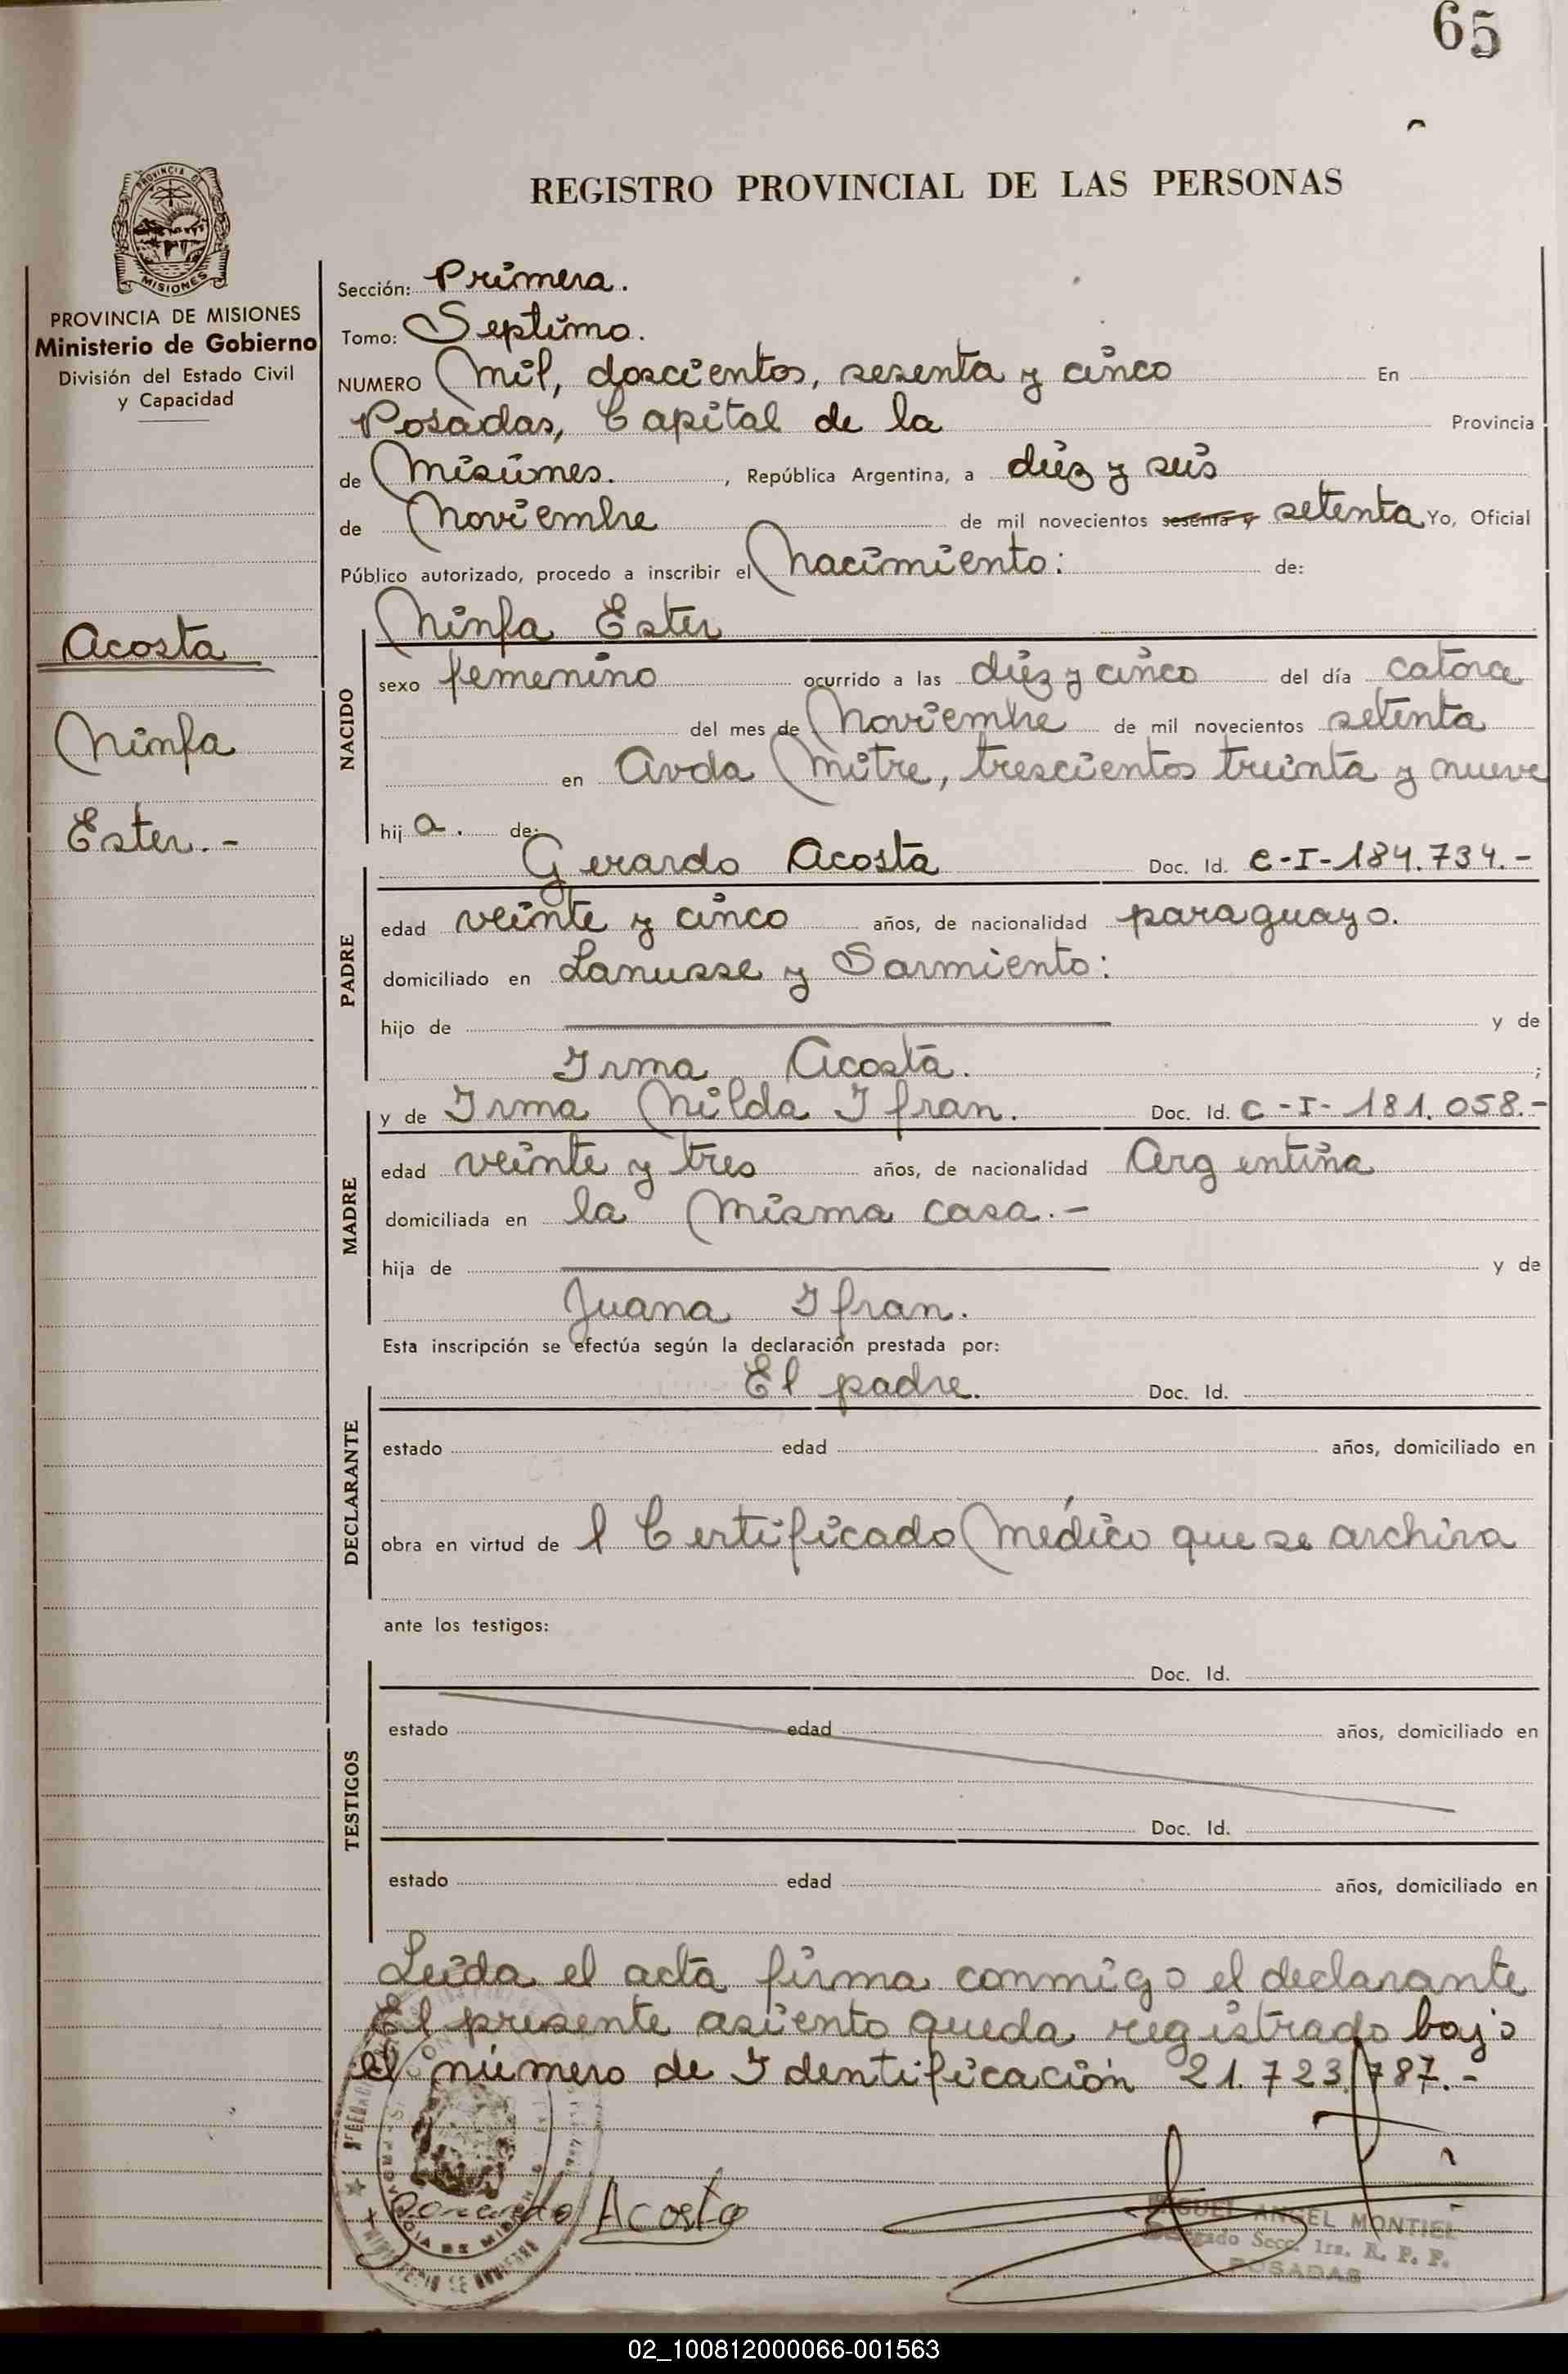 65
REGISTRO PROVINCIAL DE LAS PERSONAS
PROVINCIA DE
MISIONES
PROVINCIA DE MISIONES
Ministerio de Gobierno
División del Estado Civil
y Capacidad
Acosta
Ninfa
Ester.-
Sección: Primera.
Tomo: Septimo.
NUMERO Mil, doscientos, sesenta y cinco En
Posadas, Capital de la Provincia
de Misiones. , República Argentina, a diez y seis
de Noviembre de mil novecientos sesenta y setenta Yo, Oficial
Público autorizado, procedo a inscribir el Nacimiento: de:
Ninfa Ester
NACIDO
sexo femenino ocurrido a las diez y cinco del día catorce
del mes de Noviembre de mil novecientos setenta
en Avda Mitre, trescientos treinta y nueve
hij a. de:
Gerardo Acosta Doc. Id. C-I-184.734.-
PADRE
edad veinte y cinco años, de nacionalidad paraguayo.
domiciliado en Lanusse y Sarmiento:
hijo de y de
Irma Acosta. ;
y de Irma Nilda Ifran. Doc. Id. C-I-181.058.-
MADRE
edad veinte y tres años, de nacionalidad Argentina
domiciliada en la misma casa.-
hija de y de
Juana Ifran.
Esta inscripción se efectúa según la declaración prestada por:
El padre. Doc. Id.
DECLARANTE
estado edad años, domiciliado en
obra en virtud de l Certificado Médico que se archiva
ante los testigos:
Doc. Id.
TESTIGOS
estado edad años, domiciliado en
Doc. Id.
estado edad años, domiciliado en
Leida el acta firma conmigo el declarante
El presente asiento queda registrado bajo
el número de Identificación 21.723.787.-
Acosta
MIGUEL ANGEL MONTIEL
Secc. 1ra. R. P. P.
POSADAS
02_100812000066-001563